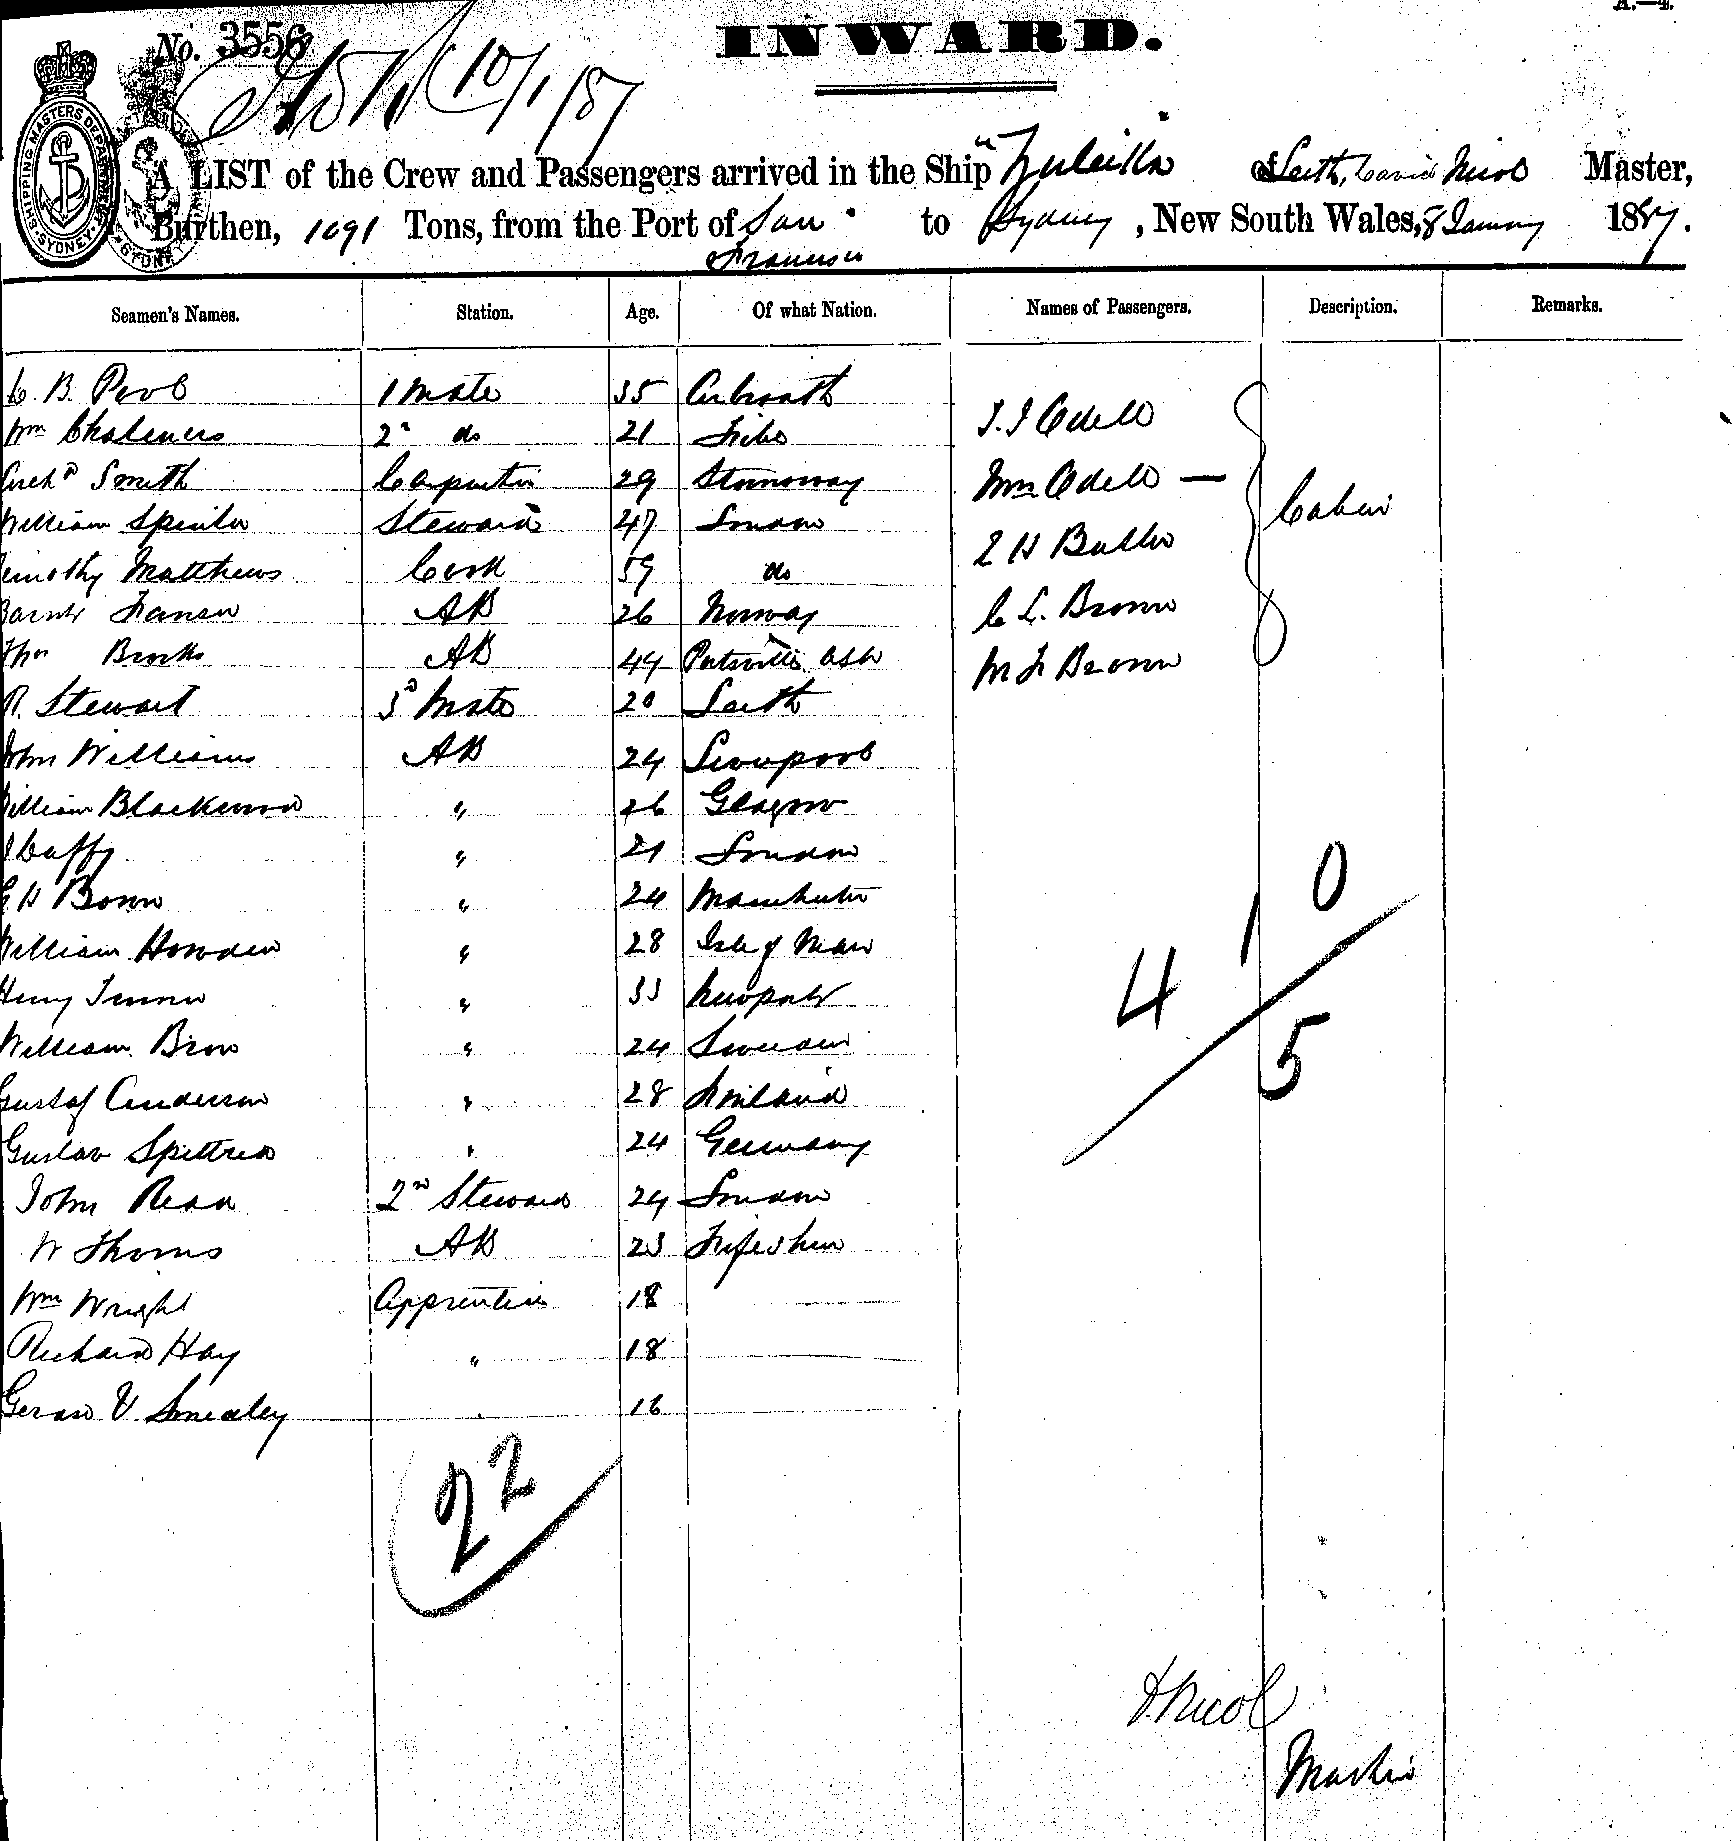 A.—4.
No. 3556
INWARD.
10/1/87
SHIPPING MASTERS DEPARTMENT
SYDNEY
A LIST of the Crew and Passengers arrived in the Ship "Zuleika" of Leith, David Nicol Master,
Burthen, 1091 Tons, from the Port of San Francisco to Sydney, New South Wales, 8 January 1887.
Seamen's Names. Station. Age. Of what Nation. Names of Passengers. Description. Remarks.
C. B. Pool 1 Mate 35 Arbroath
Wm Chalmers 2d do 21 Fife
Archd Smith Carpenter 29 Stornoway
William Spinlu Steward 47 London
Timothy Matthews Cook 59 do
Hansen AB 26 Norway
Thos Brooks AB 44 USA
R. Stewart 3d Mate 20 Leith
John Williams AB 24 Liverpool
William Blackwood " 26 Glasgow
J Caffy " 21 London
G H Bown " 24 Manchester
William Howden " 28 Isle of Man
Henry Turner " 33 Newport
William Brow " 24 Sweden
Gustaf Anderson " 28 Finland
Gustav " 24 Germany
John Read 2nd Steward 24 London
W Thoms AB 23 Fifeshire
Wm Wright Apprentice 18
Richard Hay " 18
V Smedley " 16
J. J Odell
Wm Odell —
E H Butler
C L. Brown
M F Brown
Cabin
4 1 0
5
22
D. Nicol
Master